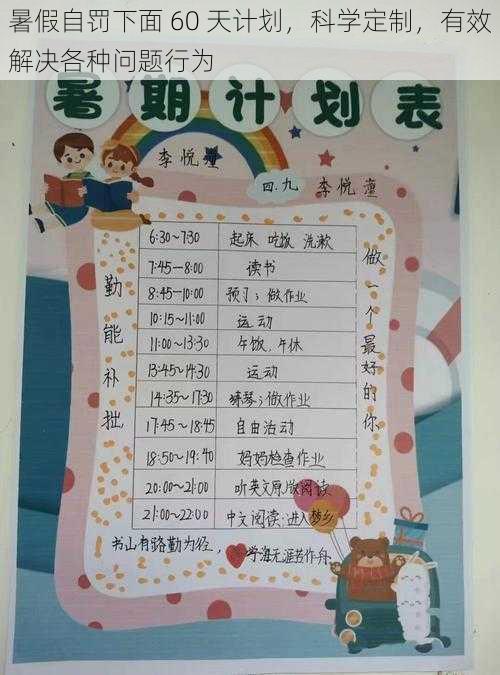 暑假自罚下面 60 天计划，科学定制，有效
解决各种问题行为
暑期计划表
李悦潼
四.九 李悦潼
勤能补拙
6:30~7:30 起床 吃饭 洗漱
7:45—8:00 读书
8:45—10:00 预习；做作业
10:15~11:00 运动
11:00~13:30 午饭，午休
13:45~14:30 运动
14:35~17:30 练琴；做作业
17:45~18:45 自由活动
18:50~19:40 妈妈检查作业
20:00~21:00 听英文原版阅读
21:00~22:00 中文阅读；进入梦乡
做一个最好的你
书山有路勤为径，学海无涯苦作舟